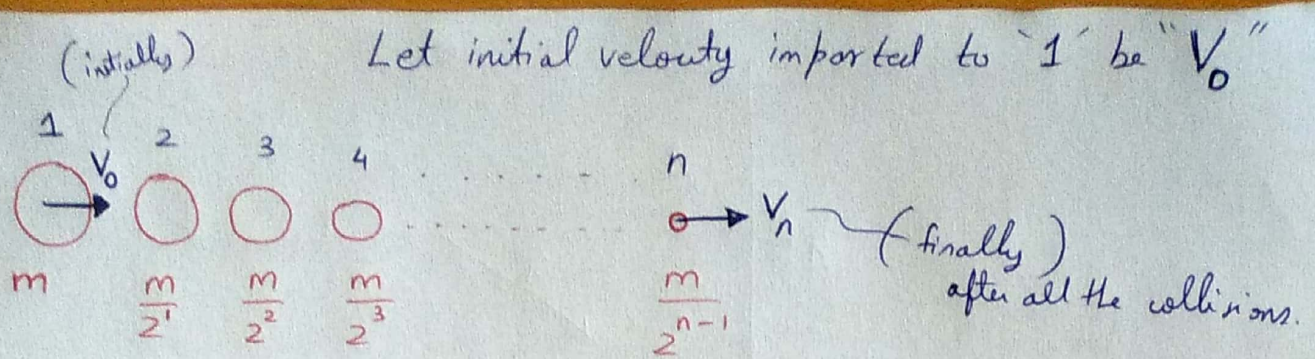 (initially)
Let initial velouty imparted to `1´ be "V₀"
1 V₀ 2 3 4 . . . . . . n
Vₙ (finally)
after all the collisions.
m m/2¹ m/2² m/2³ m/2ⁿ⁻¹